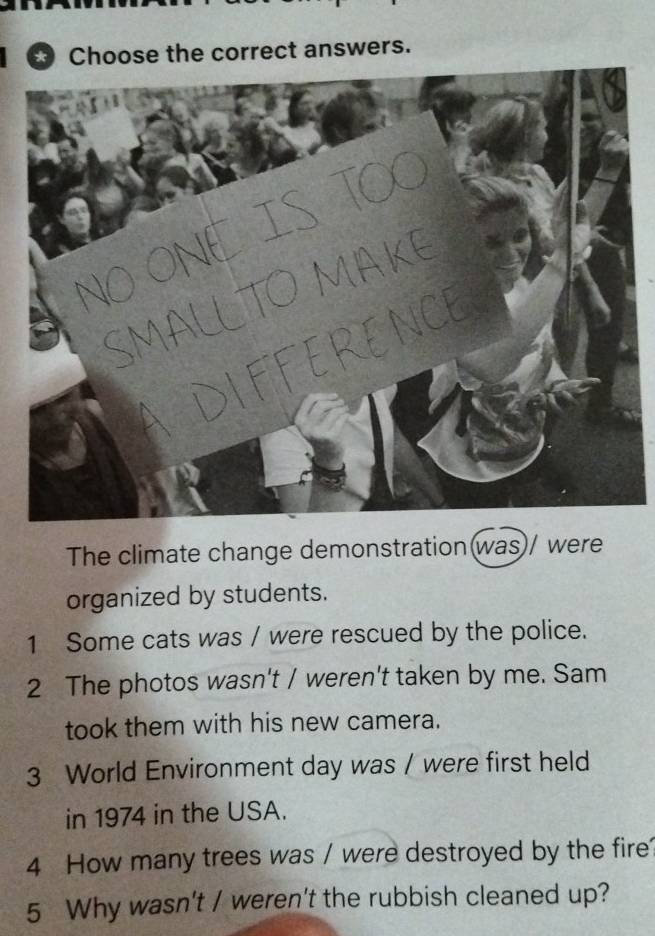 1 Choose the correct answers.
NO ONE IS TOO
SMALL TO MAKE
A DIFFERENCE
The climate change demonstration was / were
organized by students.
1 Some cats was / were rescued by the police.
2 The photos wasn't / weren't taken by me. Sam
took them with his new camera.
3 World Environment day was / were first held
in 1974 in the USA.
4 How many trees was / were destroyed by the fire?
5 Why wasn't / weren't the rubbish cleaned up?